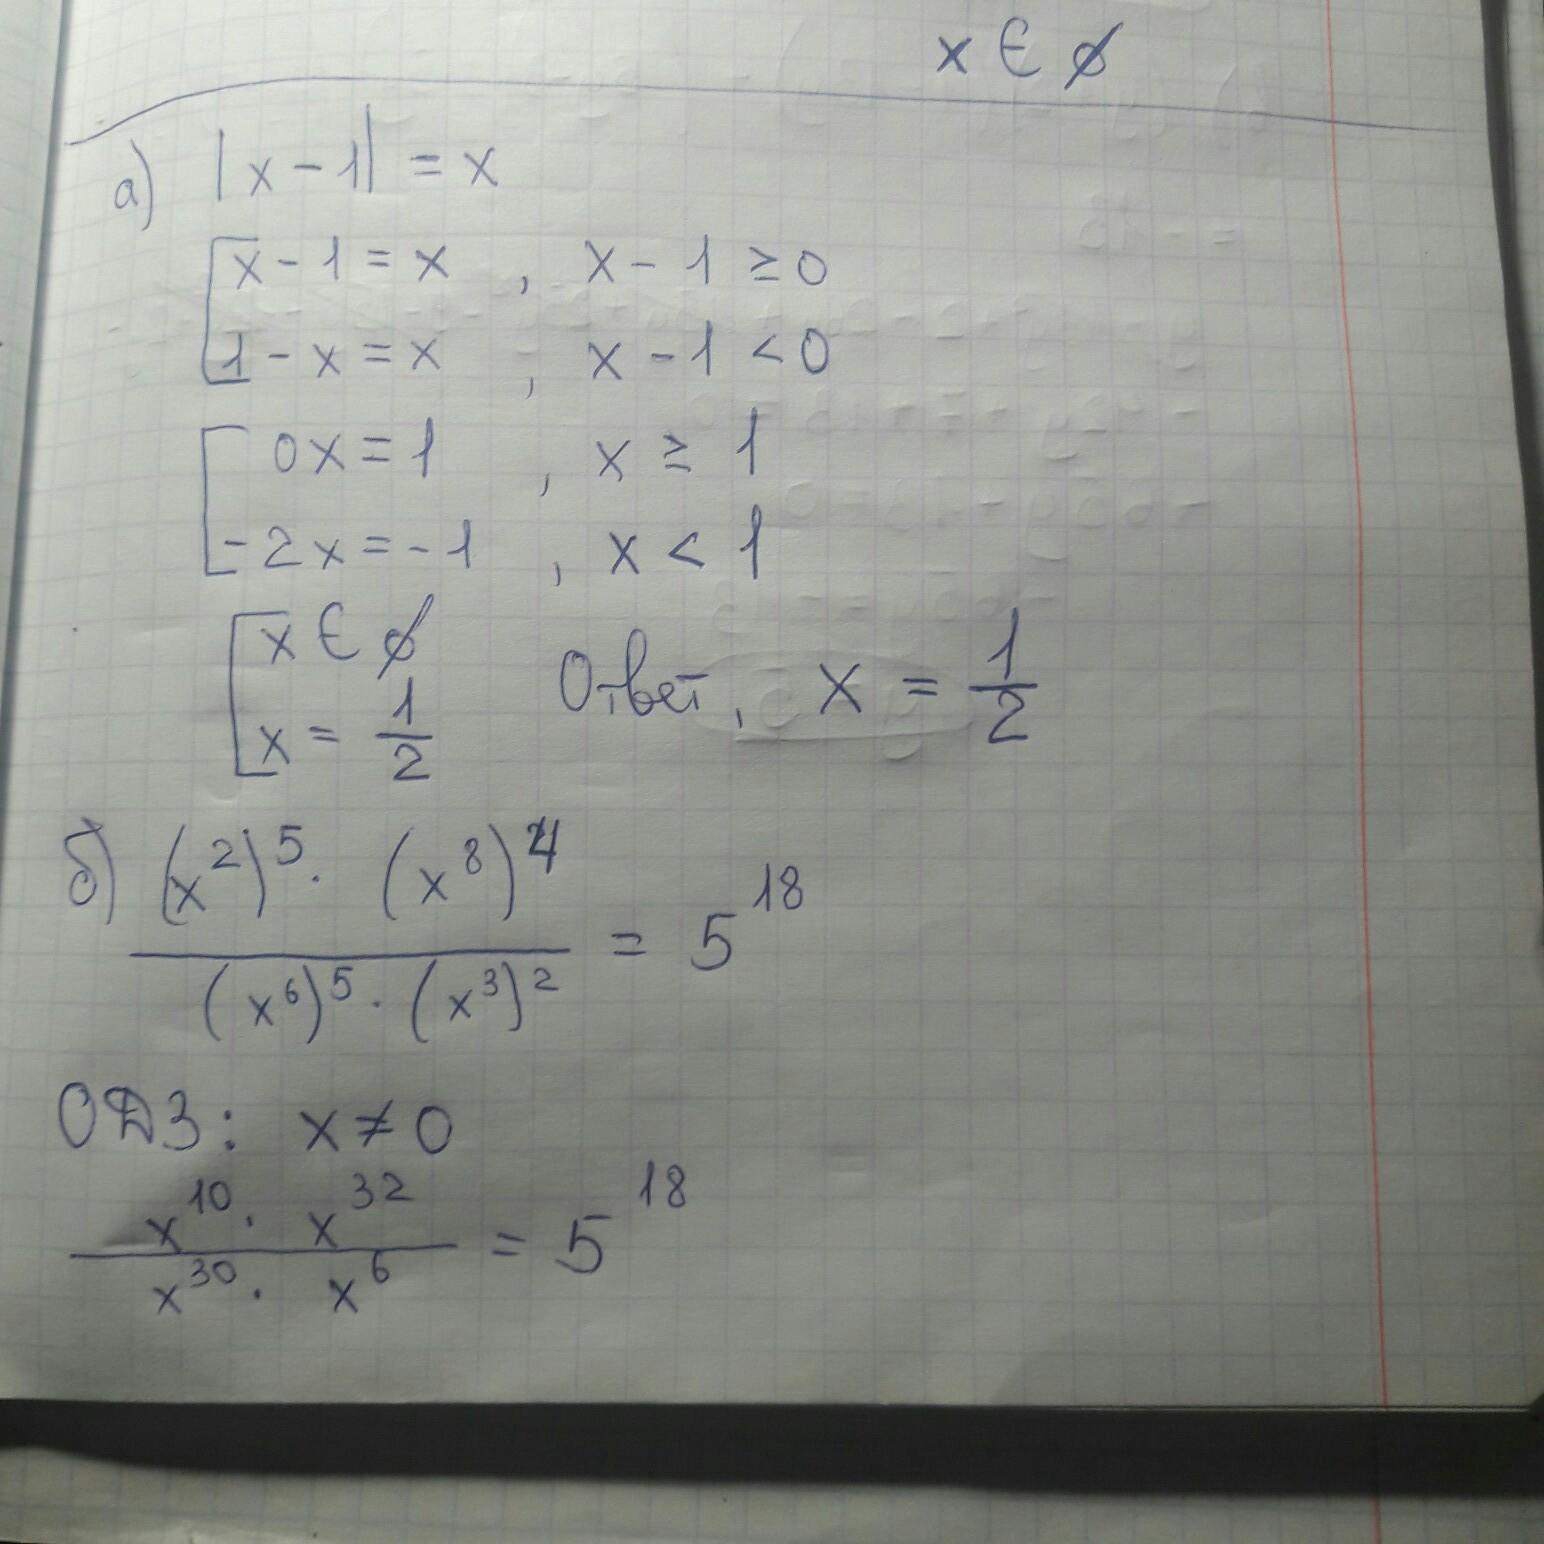 x ∈ ∅
а) |x - 1| = x
x - 1 = x , x - 1 ≥ 0
1 - x = x , x - 1 < 0
0x = 1 , x ≥ 1
-2x = -1 , x < 1
x ∈ ∅
x = 1/2 Ответ, x = 1/2
б) (x^2)^5 · (x^8)^4 / (x^6)^5 · (x^3)^2 = 5^18
ОДЗ: x ≠ 0
x^10 · x^32 / x^30 · x^6 = 5^18